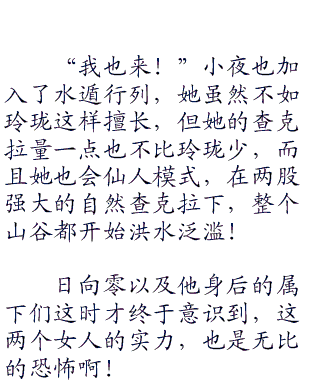 “我也来！”小夜也加
入了水遁行列，她虽然不如
玲珑这样擅长，但她的查克
拉量一点也不比玲珑少，而
且她也会仙人模式，在两股
强大的自然查克拉下，整个
山谷都开始洪水泛滥！
日向零以及他身后的属
下们这时才终于意识到，这
两个女人的实力，也是无比
的恐怖啊！